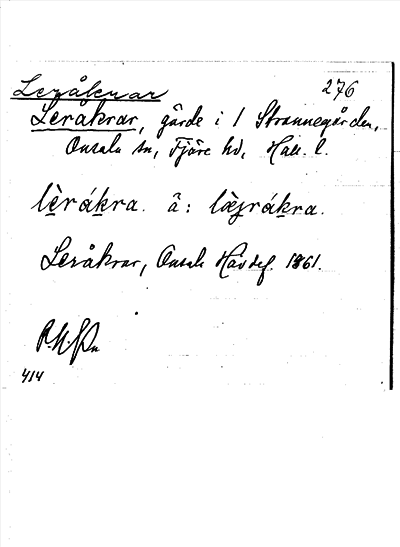 Leråkrar 276
Leråkrar, gärde i 1 Strannegården,
Onsala sn, Fjäre hd, Hall. l.
lèrákra. ä: læ̀rákra.
Leråkrar, Onsala Hävdef. 1861.
414